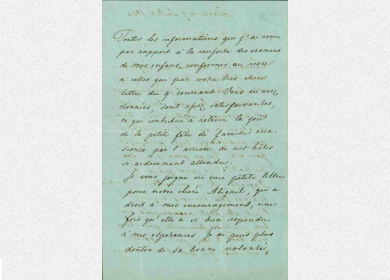 Toutes les informations que j'ai reçu
par rapport à la réussite des examens
de mes enfans, conformes au reste
à celles que par votre très chère
lettre du 9 courrant Vous m'avez
données, sont assez satisfaisantes,
ce qui contribue à relever la joie
de la petite fête de famille
par l'arrivée de nos hôtes
si ardemment attendus.
Je vous joigne ici une petite lettre
pour notre chère Abigail, qui a
droit à mes encouragement, une
fois qu'elle a si bien repondu
à mes espérances. Je ne peux plus
douter de sa bonne volonté,